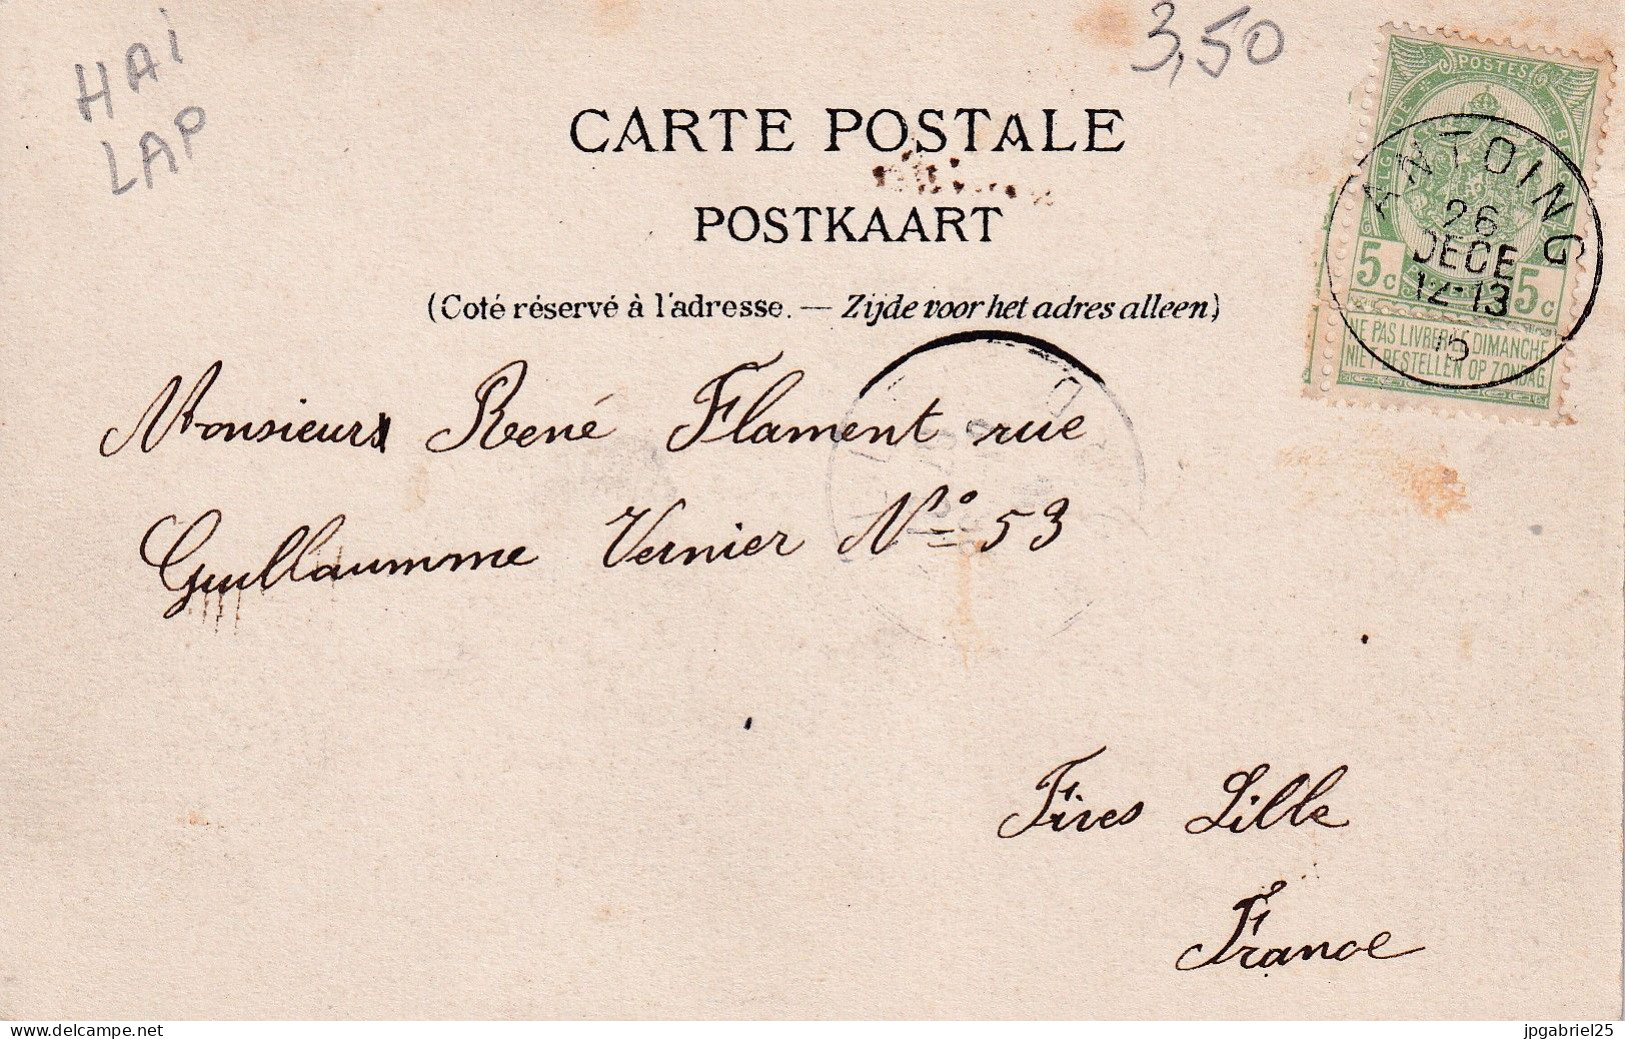 HAI
LAP
3,50
CARTE POSTALE
POSTKAART
(Coté réservé à l'adresse. — Zijde voor het adres alleen)
POSTES
BELGIQUE
5c 5c
NE PAS LIVRER LE DIMANCHE
NIET BESTELLEN OP ZONDAG.
ANTOING
26
DECE
12-13
Monsieur René Flament rue
Guillaumme Vernier No 53
Fives Lille
France
www.delcampe.net
jpgabriel25